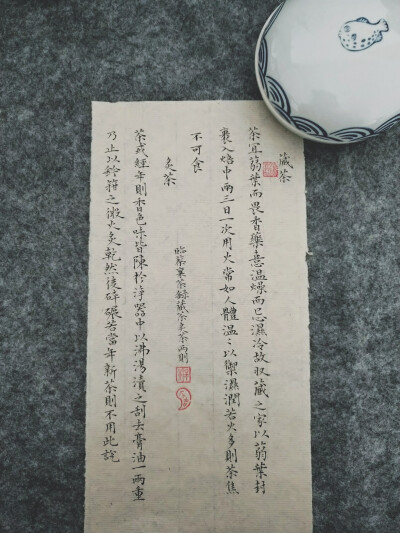 藏茶
茶宜蒻葉而畏香藥喜溫燥而忌濕冷故収藏之家以蒻葉封
裹入焙中兩三日一次用火常如人體溫〻以禦濕潤若火多則茶焦
不可食
炙茶
茶或經年則香色味皆陳於淨器中以沸湯漬之刮去膏油一兩重
乃止以鈐箝之微火炙乾然後碎碾若當年新茶則不用此說
臨蔡襄茶錄藏茶炙茶兩則